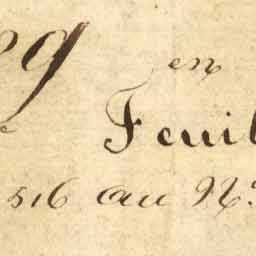 9 en
Feuil
516 au No